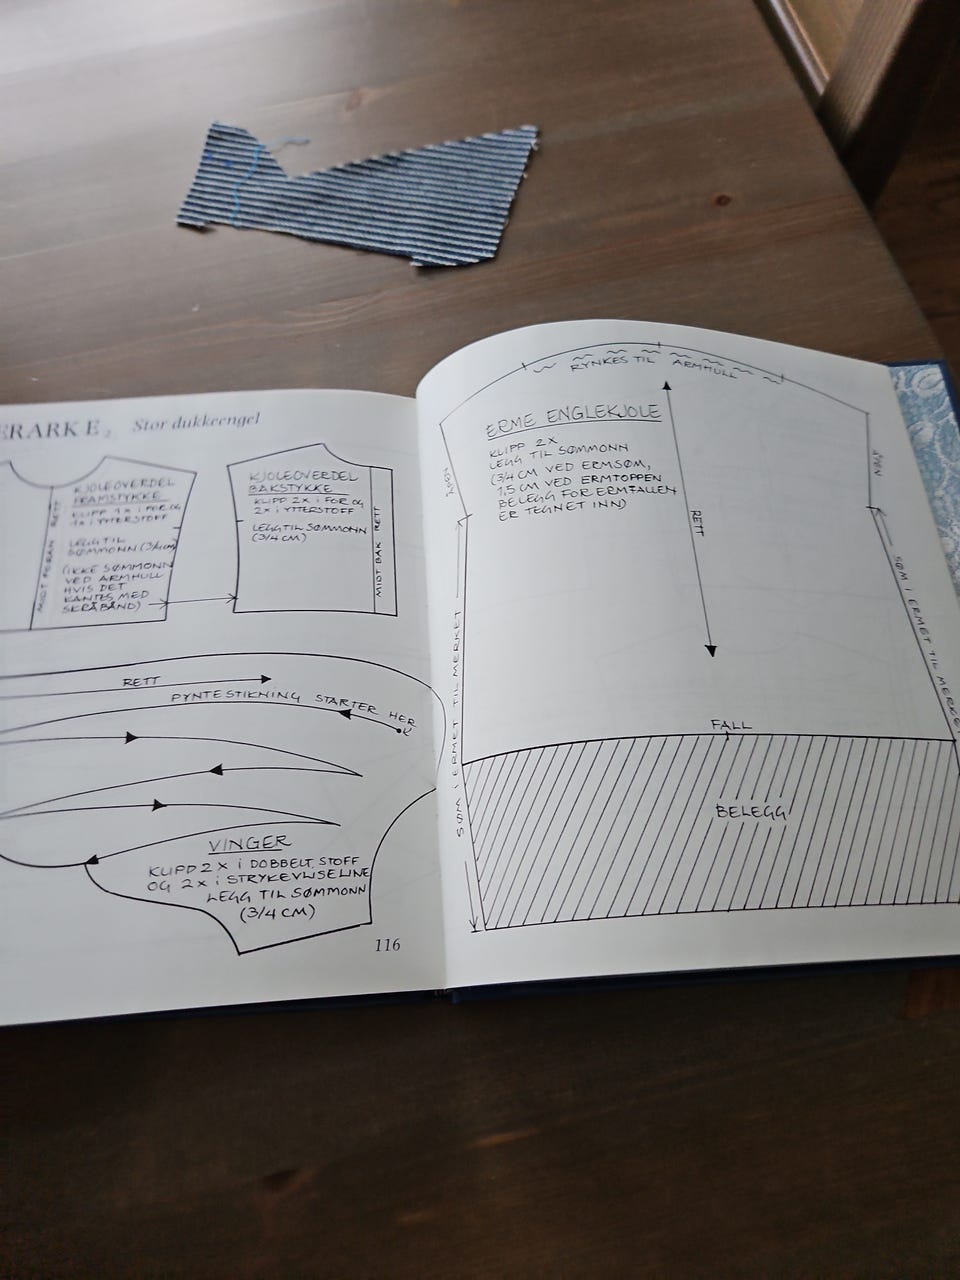 ERARK E2 Stor dukkeengel
KJOLEOVERDEL
FRAMSTYKKE
KLIPP 1X I FOR OG
1X I YTTERSTOFF
LEGG TIL
SØMMONN (3/4 CM)
(IKKE SØMMONN
VED ARMHULL
HVIS DET
KANTES MED
SKRÅBÅND)
MIDT FORAN RETT
KJOLEOVERDEL
BAKSTYKKE
KLIPP 2X I FOR OG
2X I YTTERSTOFF
LEGG TIL SØMMONN
(3/4 CM)
MIDT BAK RETT
RETT
PYNTESTIKNING STARTER HER
VINGER
KLIPP 2 X I DOBBELT STOFF
OG 2X I STRYKEVLISELINE
LEGG TIL SØMMONN
(3/4 CM)
116
RYNKES TIL ARMHULL
ERME ENGLEKJOLE
KLIPP 2X
LEGG TIL SØMMONN
(3/4 CM VED ERMSØM,
1,5 CM VED ERMTOPPEN
BELEGG FOR ERMFALLEN
ER TEGNET INN)
RETT
ÅPEN
ÅPEN
SØM I ERMET TIL MERKET
SØM I ERMET TIL MERKE
FALL
BELEGG